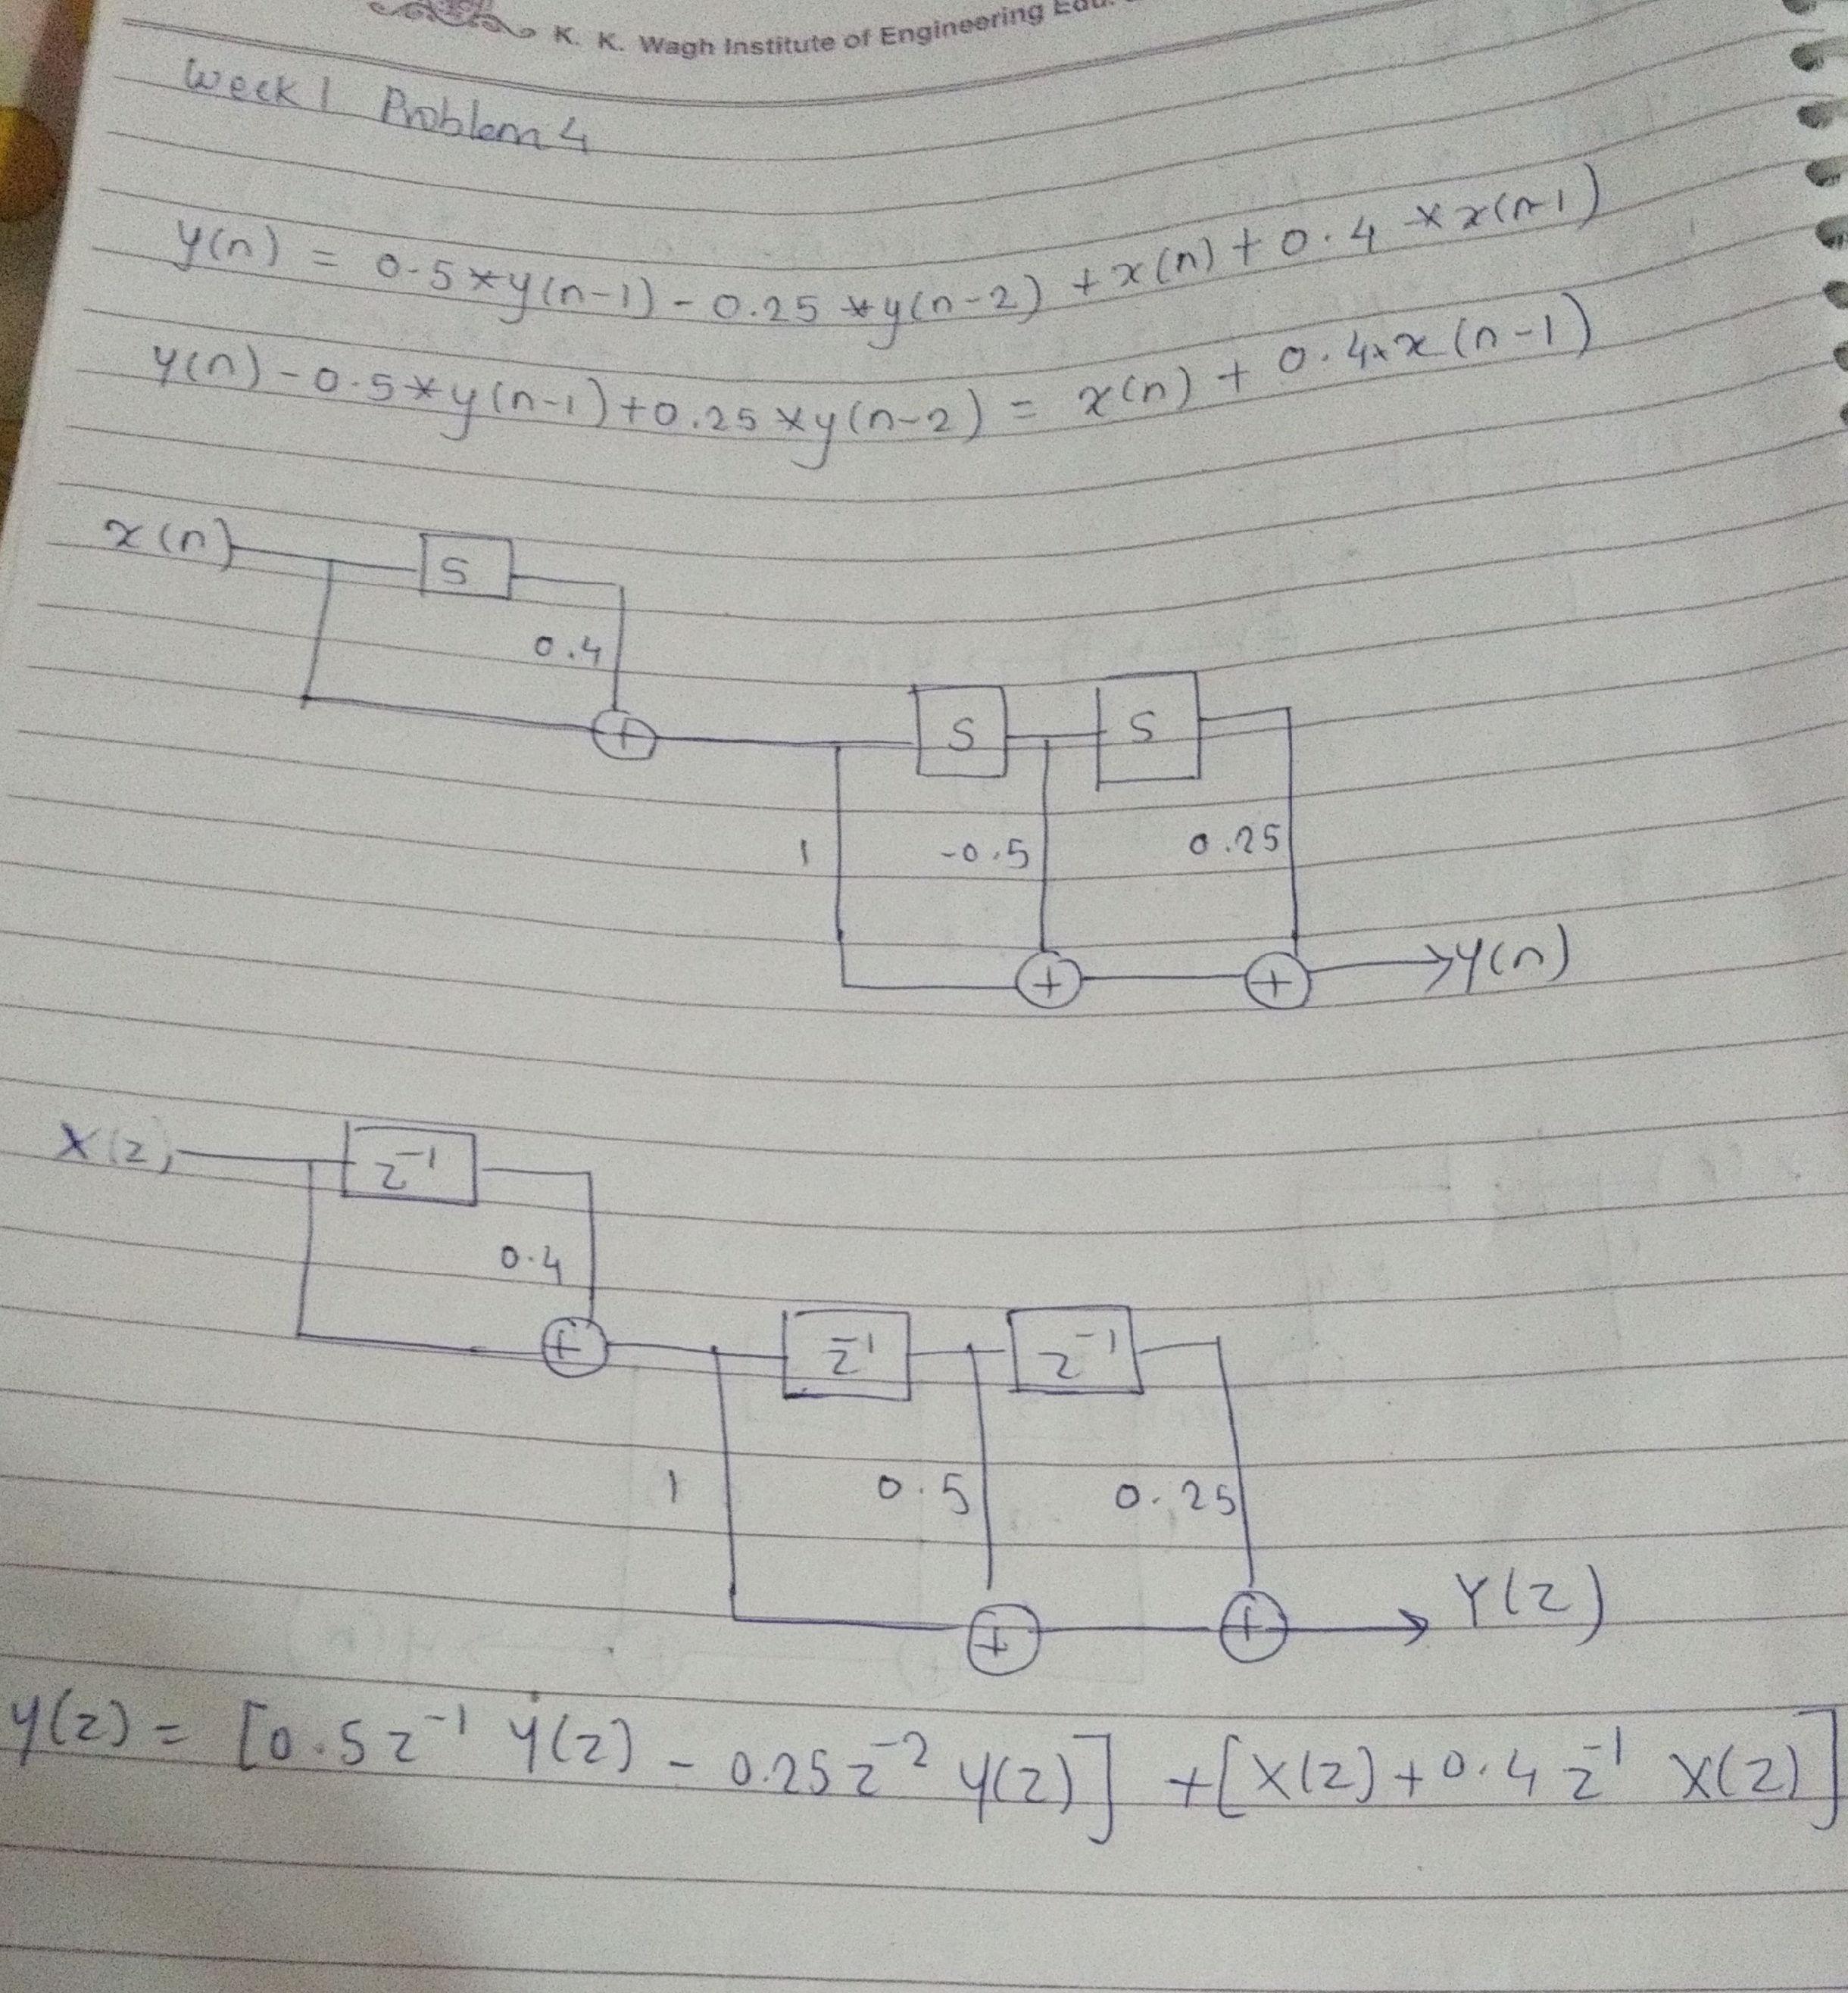 K. K. Wagh Institute of Engineering
Week 1 Problem 4
y(n) = 0.5*y(n-1) - 0.25*y(n-2) + x(n) + 0.4*x(n-1)
y(n) - 0.5*y(n-1) + 0.25*y(n-2) = x(n) + 0.4*x(n-1)
x(n) S
0.4
+ S S
1 -0.5 0.25
+ + y(n)
X(z) z⁻¹
0.4
+ z⁻¹ z⁻¹
1 0.5 0.25
+ + Y(z)
Y(z) = [0.5z⁻¹ Y(z) - 0.25z⁻² Y(z)] + [X(z) + 0.4z⁻¹ X(z)]